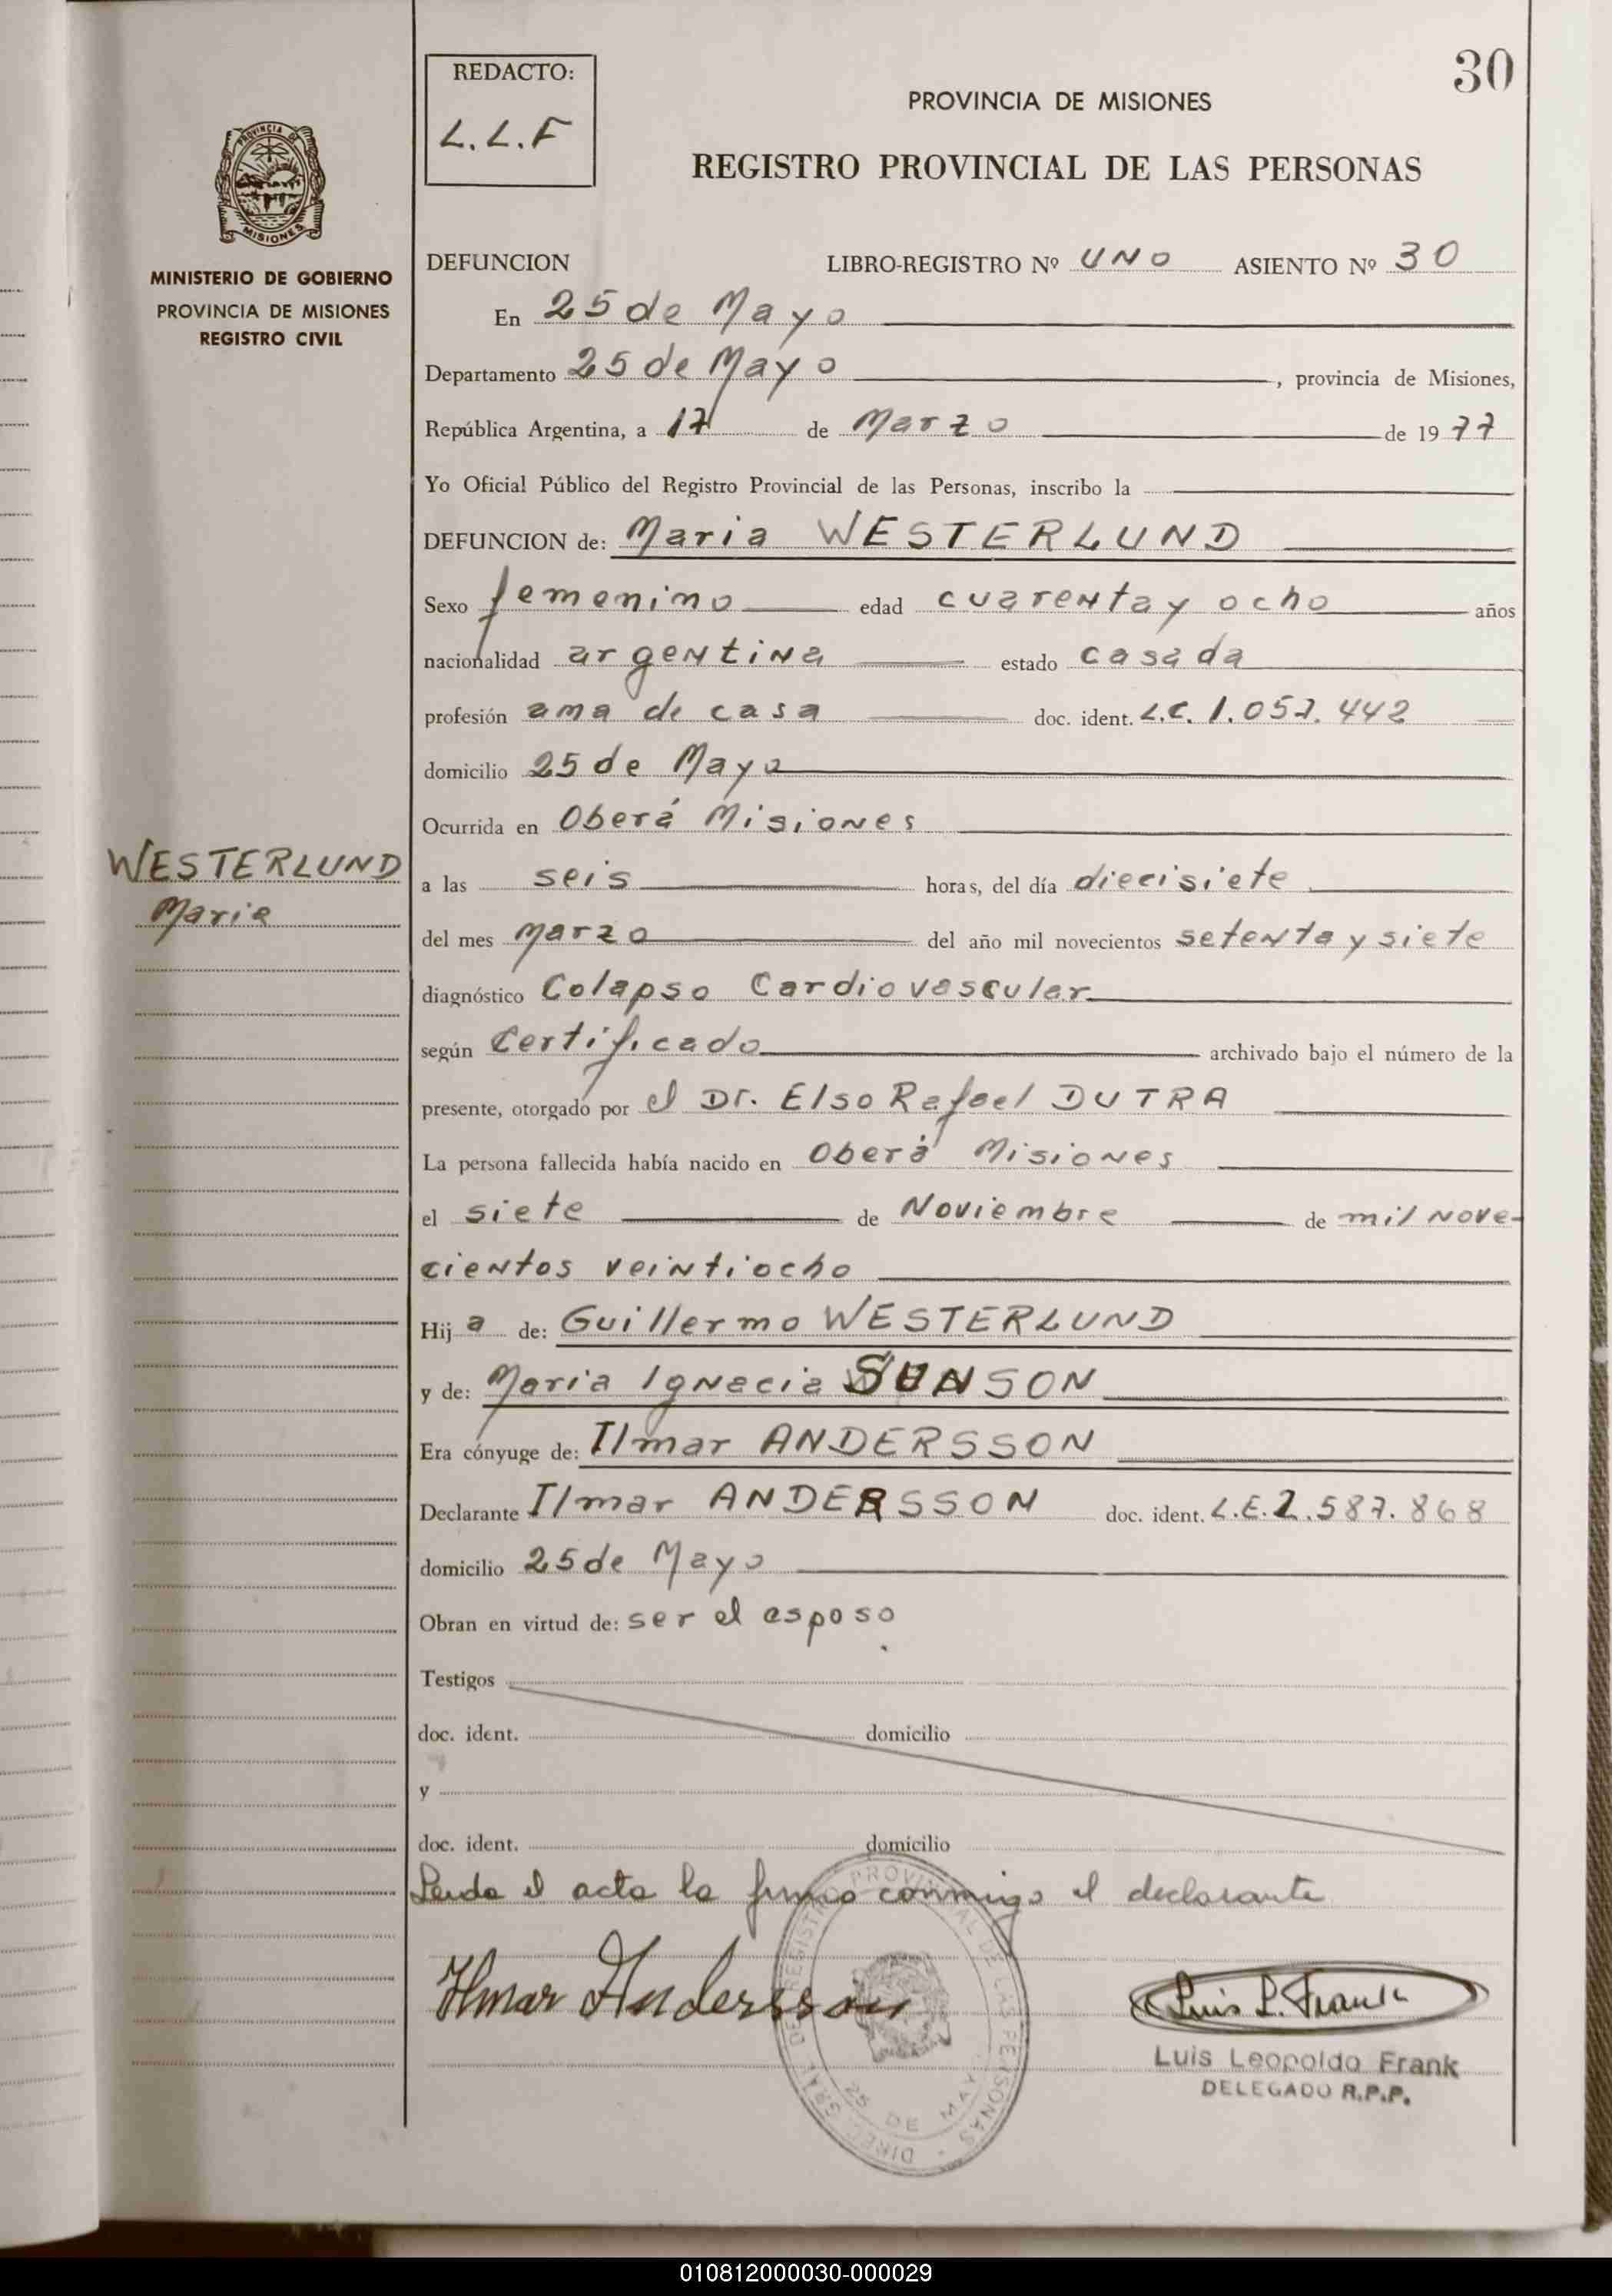 30
REDACTO:
L.L.F
PROVINCIA DE MISIONES
REGISTRO PROVINCIAL DE LAS PERSONAS
PROVINCIA DE
MISIONES
MINISTERIO DE GOBIERNO
PROVINCIA DE MISIONES
REGISTRO CIVIL
DEFUNCION LIBRO-REGISTRO Nº UNO ASIENTO Nº 30
En 25 de Mayo
Departamento 25 de Mayo, provincia de Misiones,
República Argentina, a 17 de Marzo de 1977
Yo Oficial Público del Registro Provincial de las Personas, inscribo la
DEFUNCION de: Maria WESTERLUND
Sexo femenino edad cuarenta y ocho años
nacionalidad argentina estado casada
profesión ama de casa doc. ident. L.C. 1.057.442
domicilio 25 de Mayo
Ocurrida en Oberá Misiones
WESTERLUND
Maria
a las seis horas, del día diecisiete
del mes marzo del año mil novecientos setenta y siete
diagnóstico Colapso Cardiovascular
según Certificado archivado bajo el número de la
presente, otorgado por el Dr. Elso Rafael DUTRA
La persona fallecida había nacido en Oberá Misiones
el siete de Noviembre de mil nove-
cientos veintiocho
Hija de: Guillermo WESTERLUND
y de: Maria Ignacia SUNSON
Era cónyuge de: Ilmar ANDERSSON
Declarante Ilmar ANDERSSON doc. ident. L.E.2.587.868
domicilio 25 de Mayo
Obran en virtud de: ser el esposo
Testigos
doc. ident. domicilio
y
doc. ident. domicilio
Leida el acta la firma conmigo el declarante
Ilmar Andersson
Luis L. Frank
Luis Leopoldo Frank
DELEGADO R.P.P.
DIREC. GRAL. DE REGISTRO PROVINCIAL DE LAS PERSONAS
25 DE MAYO
010812000030-000029